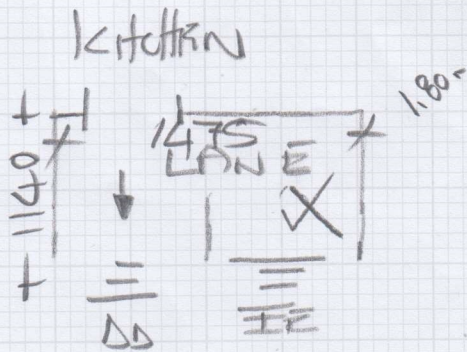 KITCHEN
1.80
1475
LANE
1140
DD